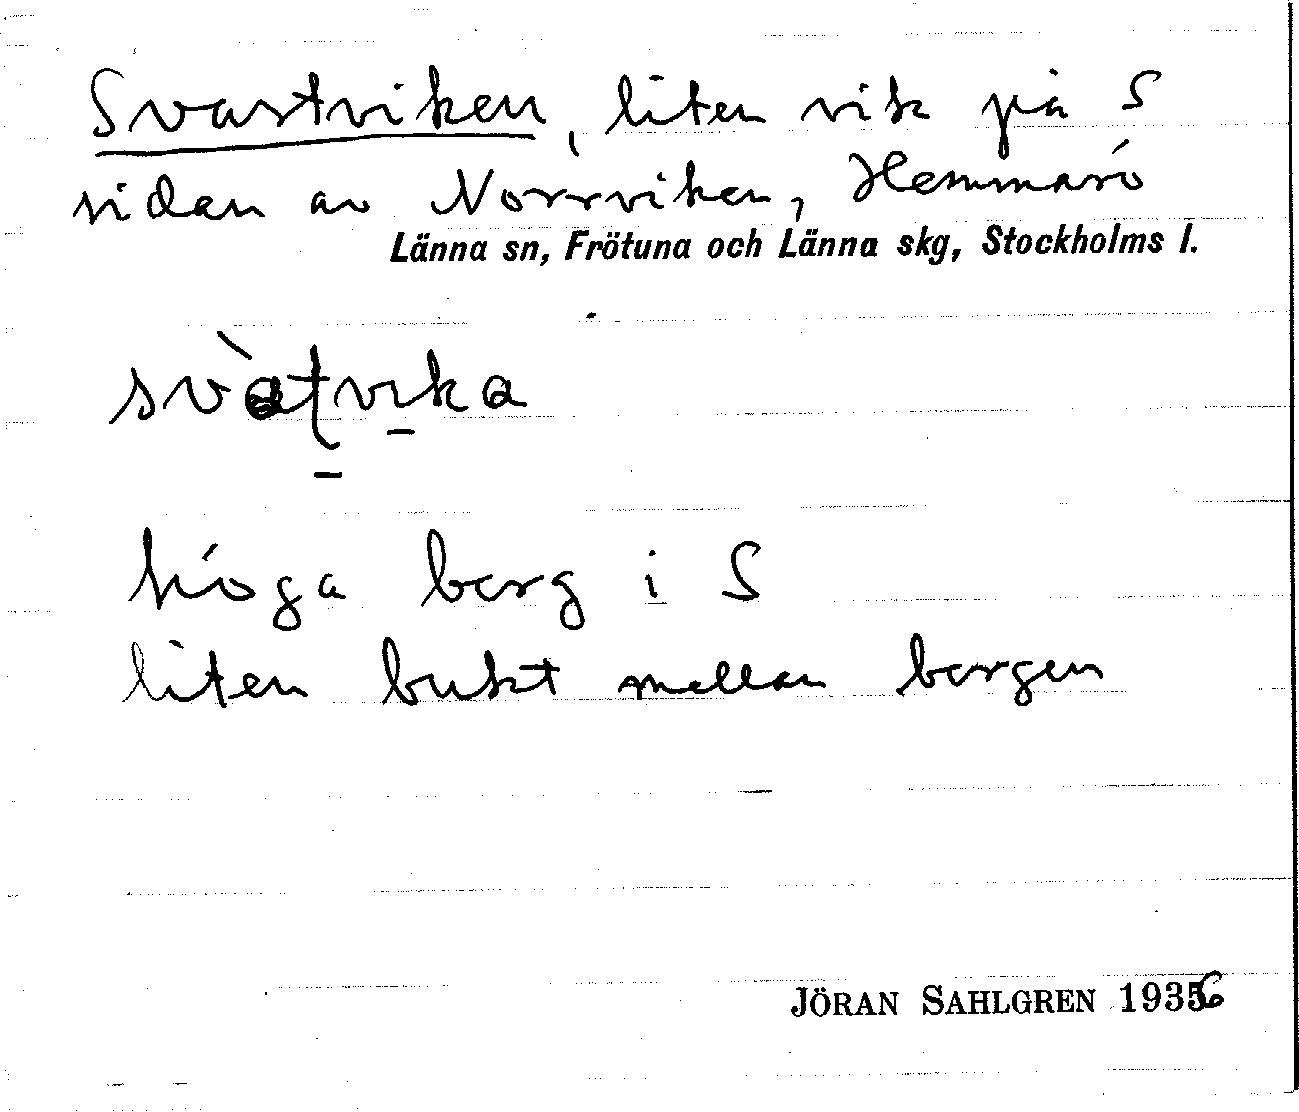 Svartviken, liten vik på S
sidan av Norrviken, Hemmarö
Länna sn, Frötuna och Länna skg, Stockholms l.
svàt̠vi̠ka
höga berg i S
liten bukt mellan bergen
JÖRAN SAHLGREN 1936